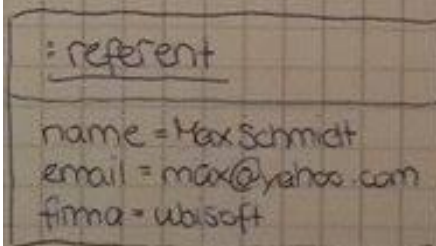 : referent
name = Max Schmidt
email = max@yahoo.com
firma = ubisoft